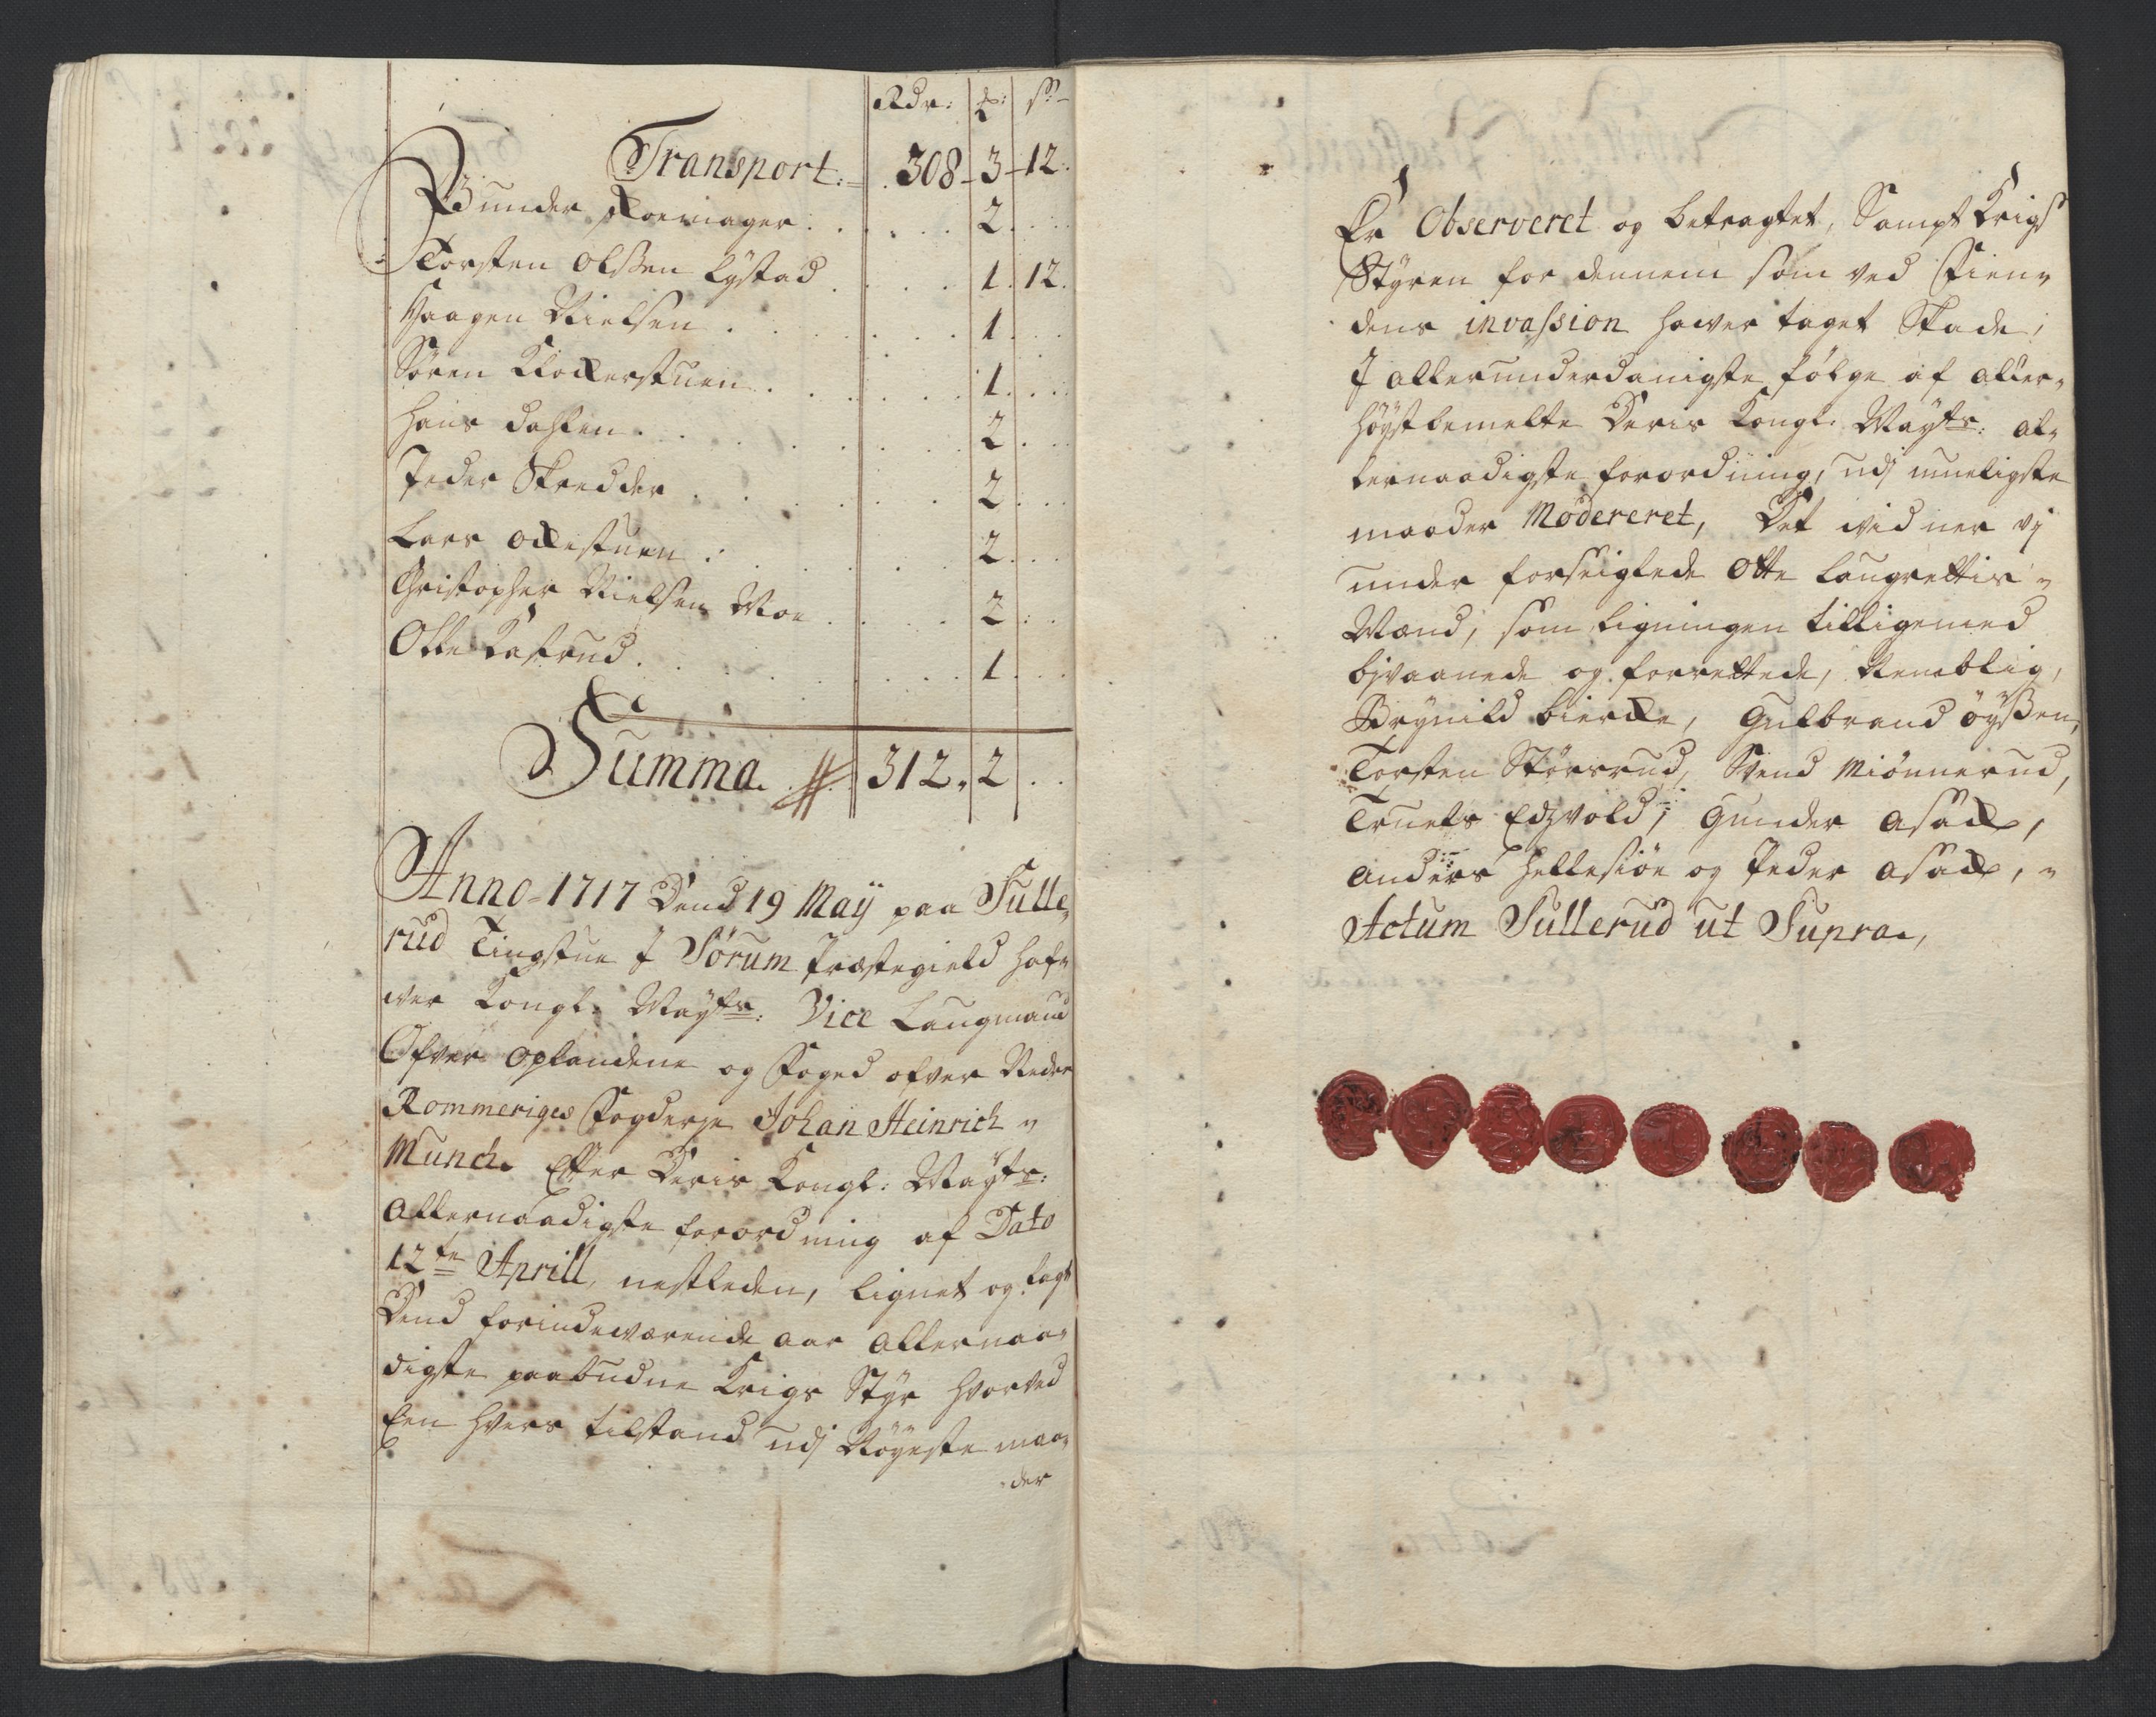 Rdr: ℔: s:
Transport: 308 - 3 - 12.
Gunder Kornager . . . 2 . .
Torsten Olsen Lystad . . . 1. 12.
Haagen Nielsen . . . 1 . .
Sören Klockerstuen . . . 1 . .
Hans Dahlen . . . 2 . .
Peder Skredder . . . 2 . .
Lars Ockistuen . . . 2 . .
Christopher Nielsen Moe . . . 2 . .
Otte Kastrud . . . 1 . .
Summa. 312. 2 . .
Anno 1717 Dend 19 Maij paa Sulle
rud Tingstue J Sörum Præstegield haf-
wer Kongl: Mayts: Vice Laugmand
Ofver Oplandene og Foged ofver Neder
Rommeriges Fogderje Johan Heinrich
Munch Effter Deris Kongl: Mayts:
Allernaadigste forordning af Dato
12te Aprill nestleden, lignet og lagt
Dend forindeværende aar Allernaa-
digste paabudne Krigs Styr hvorved
Een hvers tilstand udj Nöyeste maa-
der
Er Observeret og betragtet, Sampt Krigs
Styren for dennem som ved Fien-
dens invassion hawer taget Skade;
J allerunderdanigste fölge af aller-
höystbemelte Deris Kongl: Mayts: al-
lernaadigste forordning, udj mueligste
maader Modereret, Det widner vj
under forseiglede Otte Laugrettis-
Mænd, som ligningen tilligemed
bjvaanede og forrettede, Nemblig,
Brynild Biercke, Gulbrand Öyssen,
Torsten Störsrud, Svend Miönnerud,
Truels Edzvold, Gunder Asack,
Anders Hellesiöe og Peder Asack,
Actum Sullerud ut Supra,